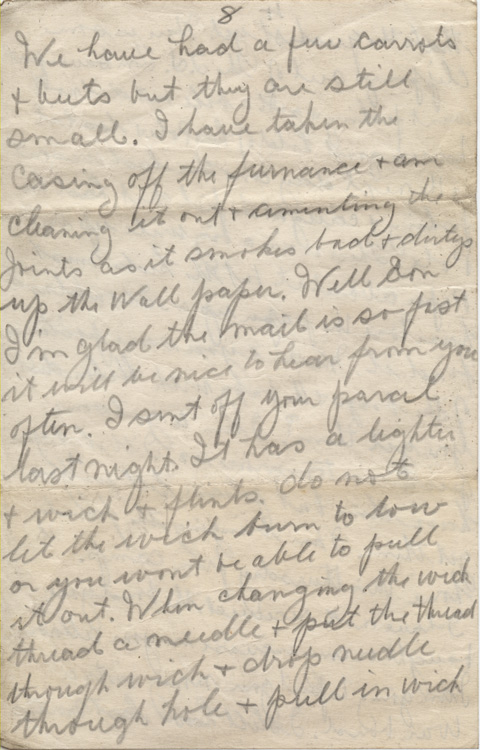 8
We have had a few carrots
+ beets but they are still
small. I have taken the
Casing off the furnance + am
cleaning it out + amenting the
Joints as it smokes bad + dirtys
up the Wall paper. Well Son
I'm glad the mail is so fast
it will be nice to hear from you
often. I sent off your parcel
last night. It has a lighter
+ wich + flints. do not
let the wich burn to low
or you wont be able to pull
it out. When changing the wich
thread a needle + put the thread
through wich + drop needle
through hole + pull in wich